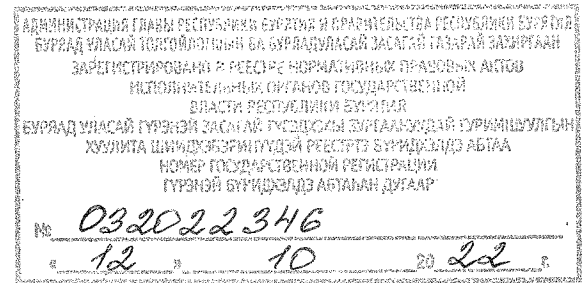 АДМИНИСТРАЦИЯ ГЛАВЫ РЕСПУБЛИКИ БУРЯТИЯ И ПРАВИТЕЛЬСТВА РЕСПУБЛИКИ БУРЯТИЯ
БУРЯАД УЛАСАЙ ТОЛГОЙЛОГШЫН БА БУРЯАД УЛАСАЙ ЗАСАГАЙ ГАЗАРАЙ ЗАХИРГААН
ЗАРЕГИСТРИРОВАНО В РЕЕСТРЕ НОРМАТИВНЫХ ПРАВОВЫХ АКТОВ
ИСПОЛНИТЕЛЬНЫХ ОРГАНОВ ГОСУДАРСТВЕННОЙ
ВЛАСТИ РЕСПУБЛИКИ БУРЯТИЯ
БУРЯАД УЛАСАЙ ГҮРЭНЭЙ ЗАСАГАЙ
ХУУЛИТА РЕЕСТРТЭ БҮРИДХЭЛДЭ АБТАА
НОМЕР ГОСУДАРСТВЕННОЙ РЕГИСТРАЦИИ
ГҮРЭНЭЙ БҮРИДХЭЛДЭ АБТАҺАН ДУГААР
№ 032022346
« 12 » 10 20 22 г.